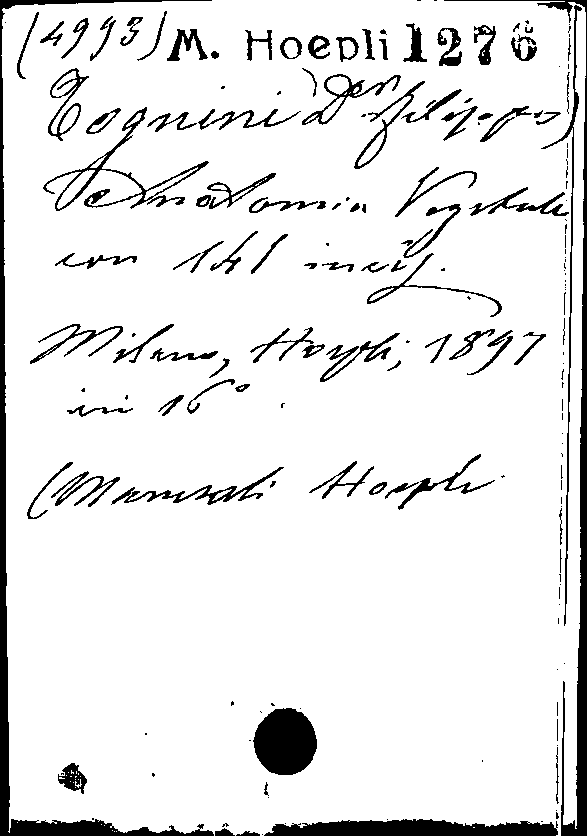 (4993) M. Hoepli 1276
Tognini Dr Filippo)
Anatomia Vegetale
con 141 incis.
Milano, Hoepli, 1897
in 16°.
(Manuali Hoepli